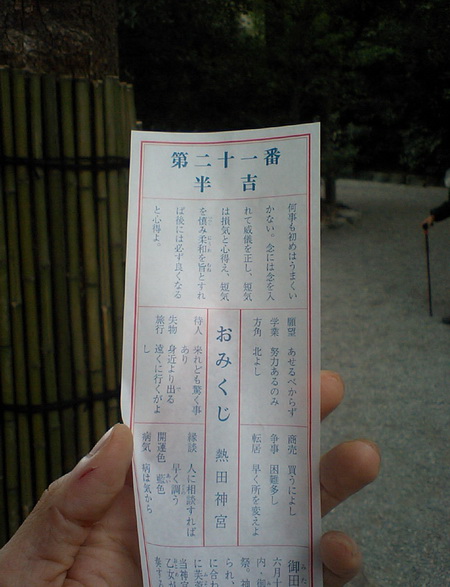 第二十一番
半吉
何事も初めはうまくい
かない。念には念を入
れて威儀を正し、短気
は損気と心得え、短気
を慎み柔和を旨とすれ
ば後には必ず良くなる
と心得よ。
願望 あせるべからず
学業 努力あるのみ
方角 北よし
おみくじ 熱田神宮
待人 来れども驚く事
あり
失物 身近より出る
旅行 遠くに行くがよ
し
商売 買うによし
争事 困難多し
転居 早く所を変えよ
縁談 人に相談すれば
早く調う
開運色 藍色
病気 病は気から
御田
六月十
内、御
祭。神
られ、
に合わ
に美
当神宮
乙女が
奏する